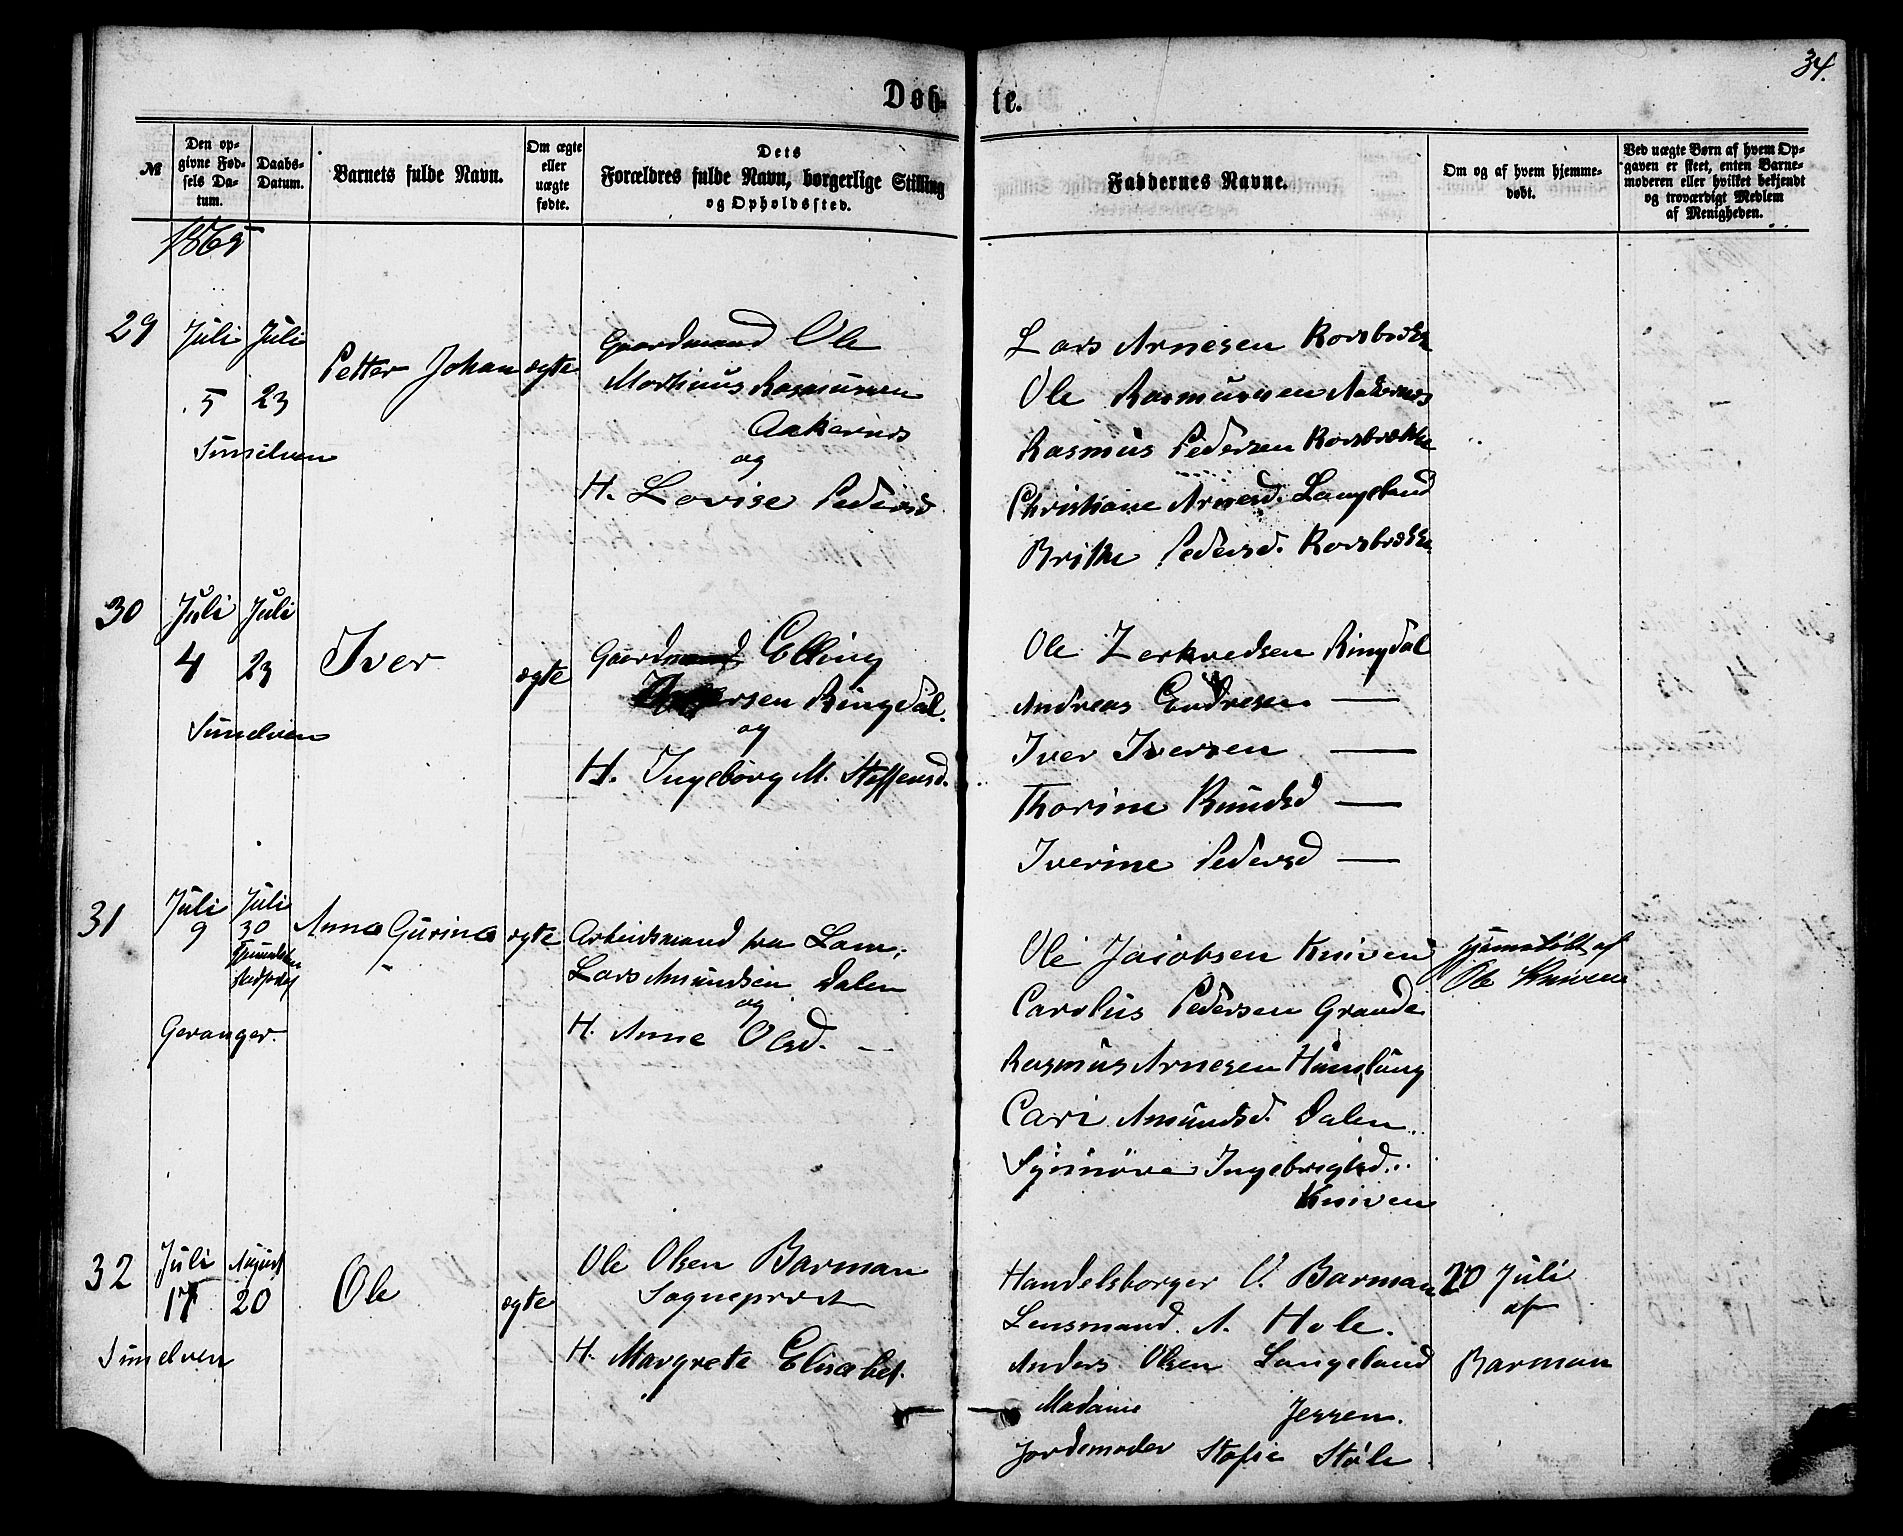 34.
Døb-
te.
№
Den op-
givne Fød-
sels Da-
tum.
Daabs-
Datum.
Barnets fulde Navn.
Om ægte
eller
uægte
fødte.
Dets
Forældres fulde Navn, borgerlige Stilling
og Opholdssted.
Faddernes Navne.
Om og af hvem hjemme-
døbt.
Ved uægte Børn af hvem Op-
gaven er skeet, enten Barne-
moderen eller hvilket bekjendt
og troværdigt Medlem
af Menigheden.
1865
29
Juli
5
Sunelven
Juli
23
Petter Johan
ægte
Gaardmand Ole
Martinus Rasmussen
Aakernes
og
H. Lovise Pedersd
Lars Arnesen Korsbrekke
Ole Rasmussen Aakernes
Rasmus Pedersen Korsbrække
Christiane Arnesd. Langeland
Brithe Pedersd. Korsbrække
30
Juli
4
Sunelven
Juli
23
Iver
ægte
Gaardmand Elling
Ringdal.
og
H. Ingeborg M. Steffensd.
Ole Ringdal
Andreas Endresen —
Iver Iversen —
Thorine Knudsd —
Iverine Pedersd —
31
Juli
9
Geranger.
Juli
30
Anna Gurina
ægte
Arbeidsmand fra Lom,
Lars Amundsen Dalen
og
H. Anne Olsd. —
Ole Jacobsen Kniven
Carolus Pedersen Grande
Rasmus Arnesen Homlung
Cari Amundsd. Dalen.
Synnøve Ingebrigtsd.
Kniven
hjemmedøbt af
Ole Kniven
32
Juli
17
Sunelven
August
20
Ole
ægte
Ole Olsen Barman
Sognepræst
H. Margrete Elisabet.
Handelsborger O. Barman
Lensmand. A. Hole.
Anders Olsen Langeland
Madame Jessen.
Jordemoder Stofie Støle
20 Juli
af
Barman